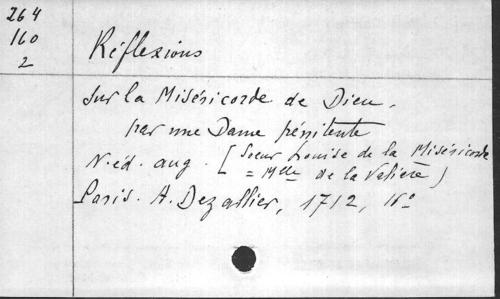 264
160
2
Réflexions
sur la Miséricorde de Dieu.
par une Dame pénitente
N. éd. aug. [Soeur Louise de la Miséricorde
= Mlle de la Valière)
Paris. A. Dezallier, 1712, 16°